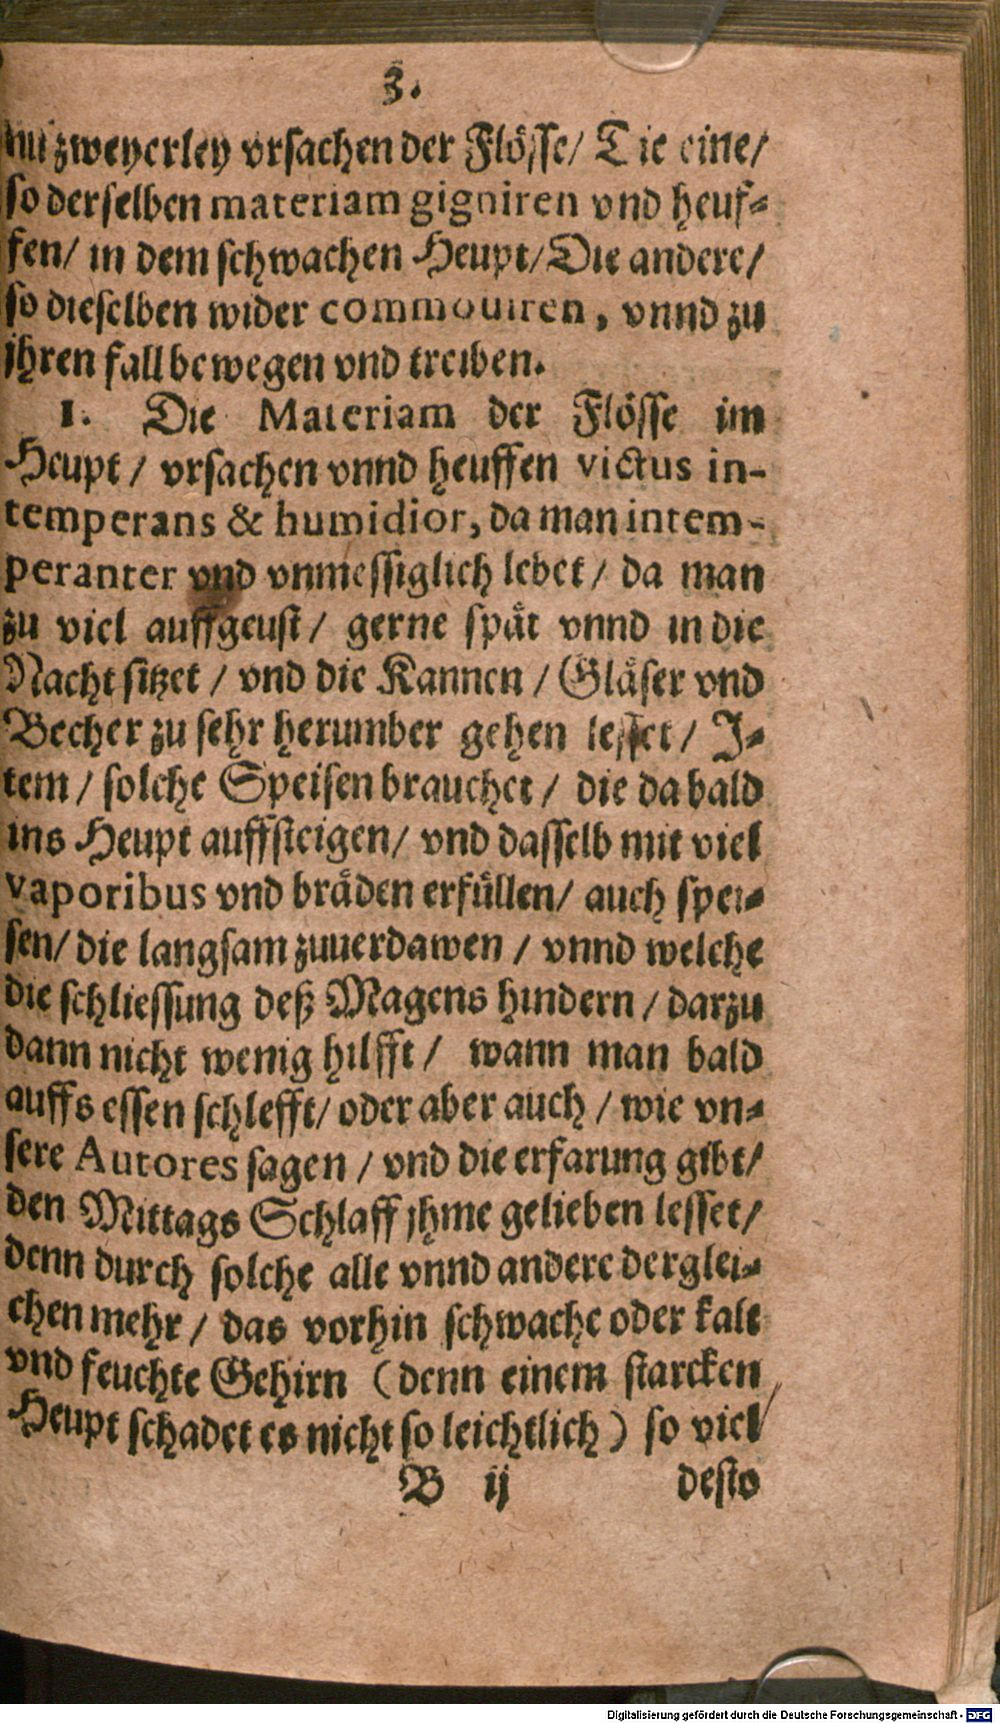 3.
zweyerley vrsachen der Flösse/ Die eine/
so derselben materiam gigniren vnd heuf-
fen/ in dem schwachen Heupt/Die andere/
so dieselben wider commouiren, vnnd zu
jhren fall bewegen vnd treiben.
1. Die Materiam der Flösse im
Heupt / vrsachen vnnd heuffen victus in-
temperans & humidior, da man intem-
peranter vnd vnmessiglich lebet / da man
zu viel auffgeust / gerne spåt vnnd in die
Nacht sitzet / vnd die Kannen / Glåser vnd
Becher zu sehr herumber gehen lesset / J-
tem / solche Speisen brauchet / die da bald
ins Heupt auffsteigen/ vnd dasselb mit viel
vaporibus vnd bråden erfüllen/ auch spei-
sen/ die langsam zuuerdawen / vnnd welche
die schliessung deß Magens hindern / darzu
dann nicht wenig hilfft / wann man bald
auffs essen schlefft/ oder aber auch / wie vn-
sere Autores sagen / vnd die erfarung gibt/
den Mittags Schlaff jhme gelieben lesset/
denn durch solche alle vnnd andere derglei-
chen mehr / das vorhin schwache oder kalt
vnd feuchte Gehirn (denn einem starcken
Heupt schadet es nicht so leichtlich) so viel
B ij desto
Digitalisierung gefördert durch die Deutsche Forschungsgemeinschaft - DFG